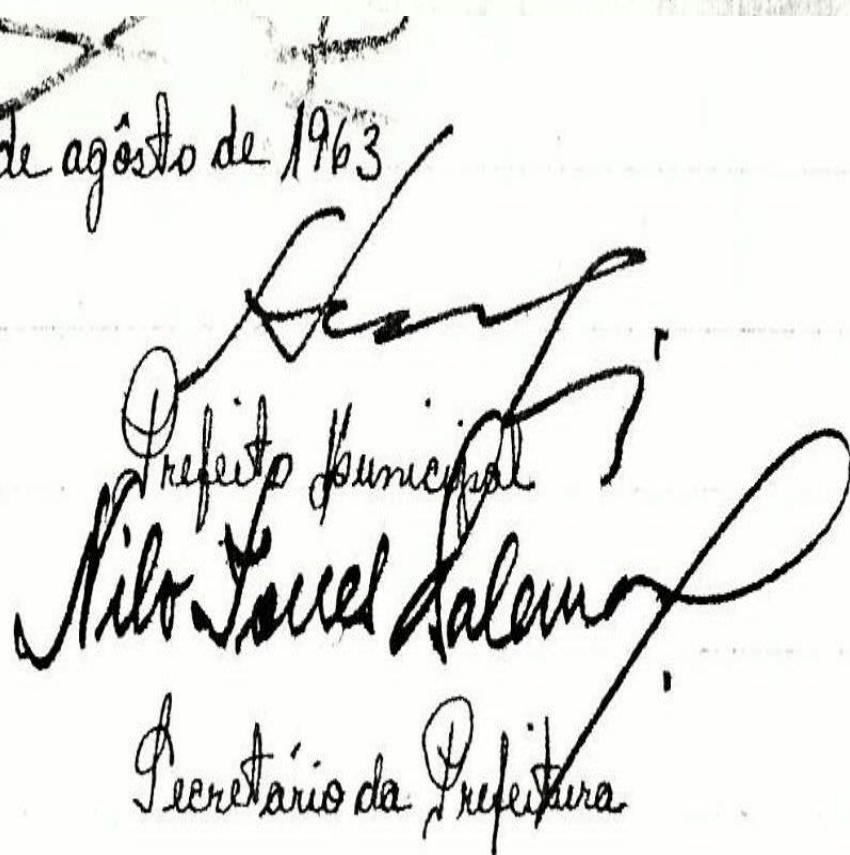 de agôsto de 1963
Prefeito Municipal
Nilo Torres Salema
Secretário da Prefeitura